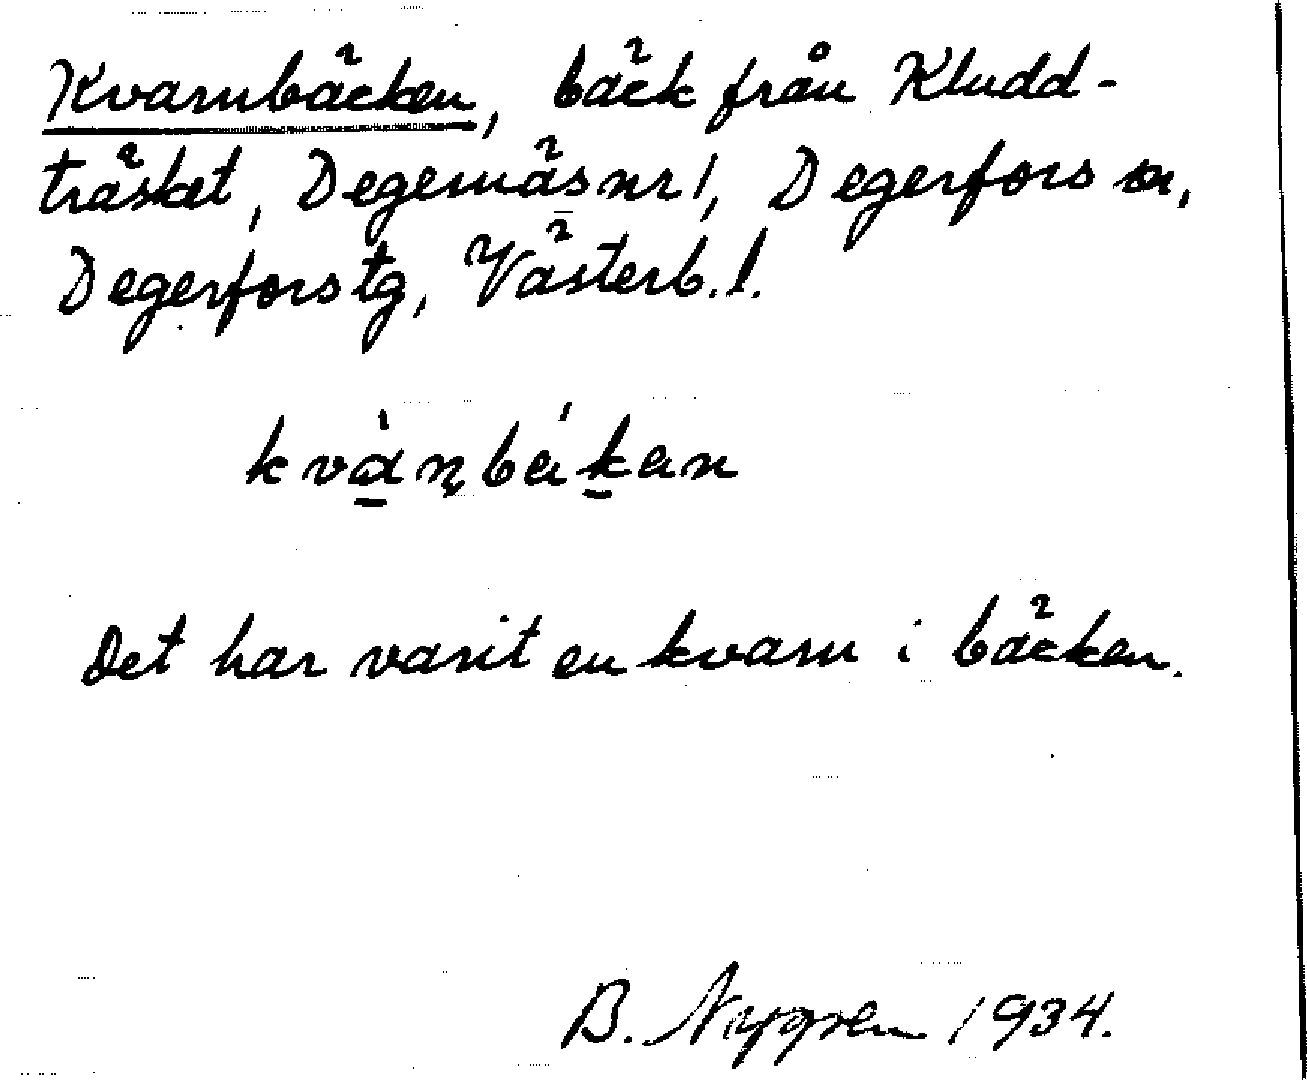 Kvarnbäcken, bäck från Kludd-
träsket, Degernäs nr 1, Degerfors sn,
Degerfors tg, Västerb. l.
kvàṇbákan
Det har varit en kvarn i bäcken.
B. Nygren 1934.